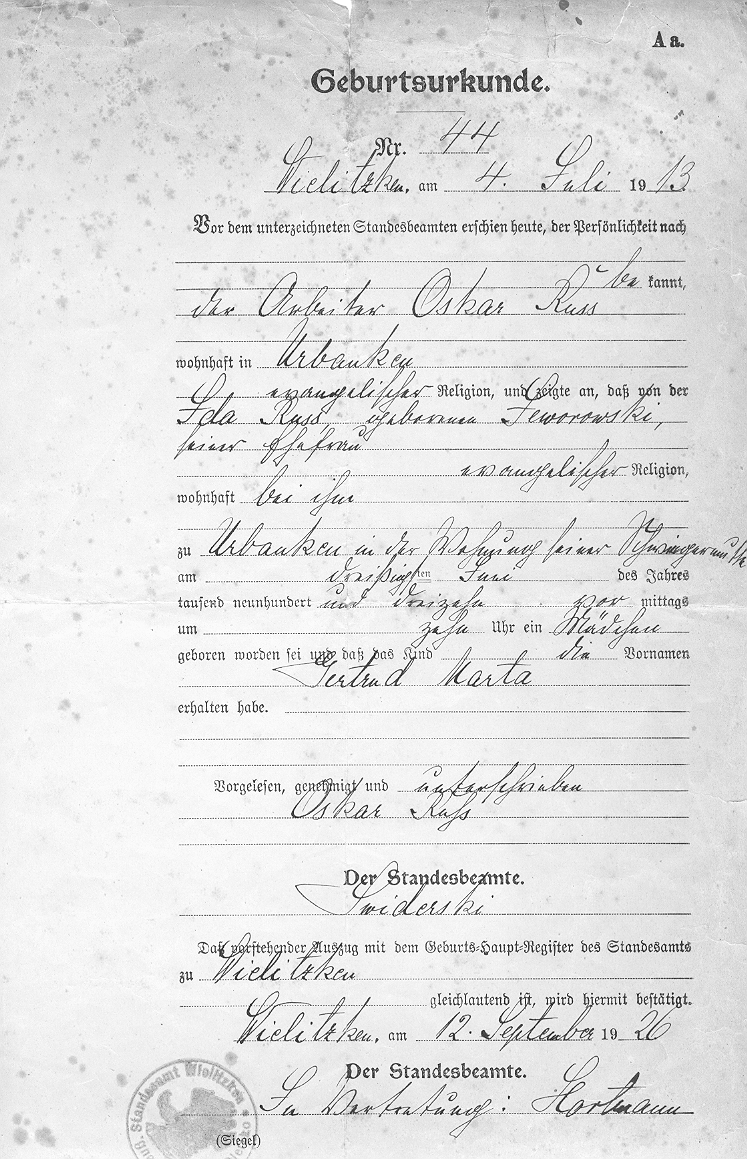 A a.
Geburtsurkunde.
Nr. 44
Wielitzken, am 4. Juli 1913
Vor dem unterzeichneten Standesbeamten erschien heute, der Persönlichkeit nach
be kannt,
der Arbeiter Oskar Russ
wohnhaft in Urbanken
evangelischer Religion, und zeigte an, daß von der
Ida Russ, geborenen Jeworowski,
seiner Ehefrau
evangelischer Religion,
wohnhaft bei ihm
zu Urbanken in der Wohnung seiner Schwiegermutter
am dreißigsten Juni des Jahres
tausend neunhundert und dreizehn vor mittags
um zehn Uhr ein Mädchen
geboren worden sei und daß das Kind die Vornamen
Gertrud Marta
erhalten habe.
Vorgelesen, genehmigt und unterschrieben
Oskar Russ
Der Standesbeamte.
Swiderski
Daß vorstehender Auszug mit dem Geburts-Haupt-Register des Standesamts
zu Wielitzken
gleichlautend ist, wird hiermit bestätigt.
Wielitzken, am 12. September 1926
Der Standesbeamte.
In Vertretung: Hartmann
Standesamt Wielitzken
(Siegel)